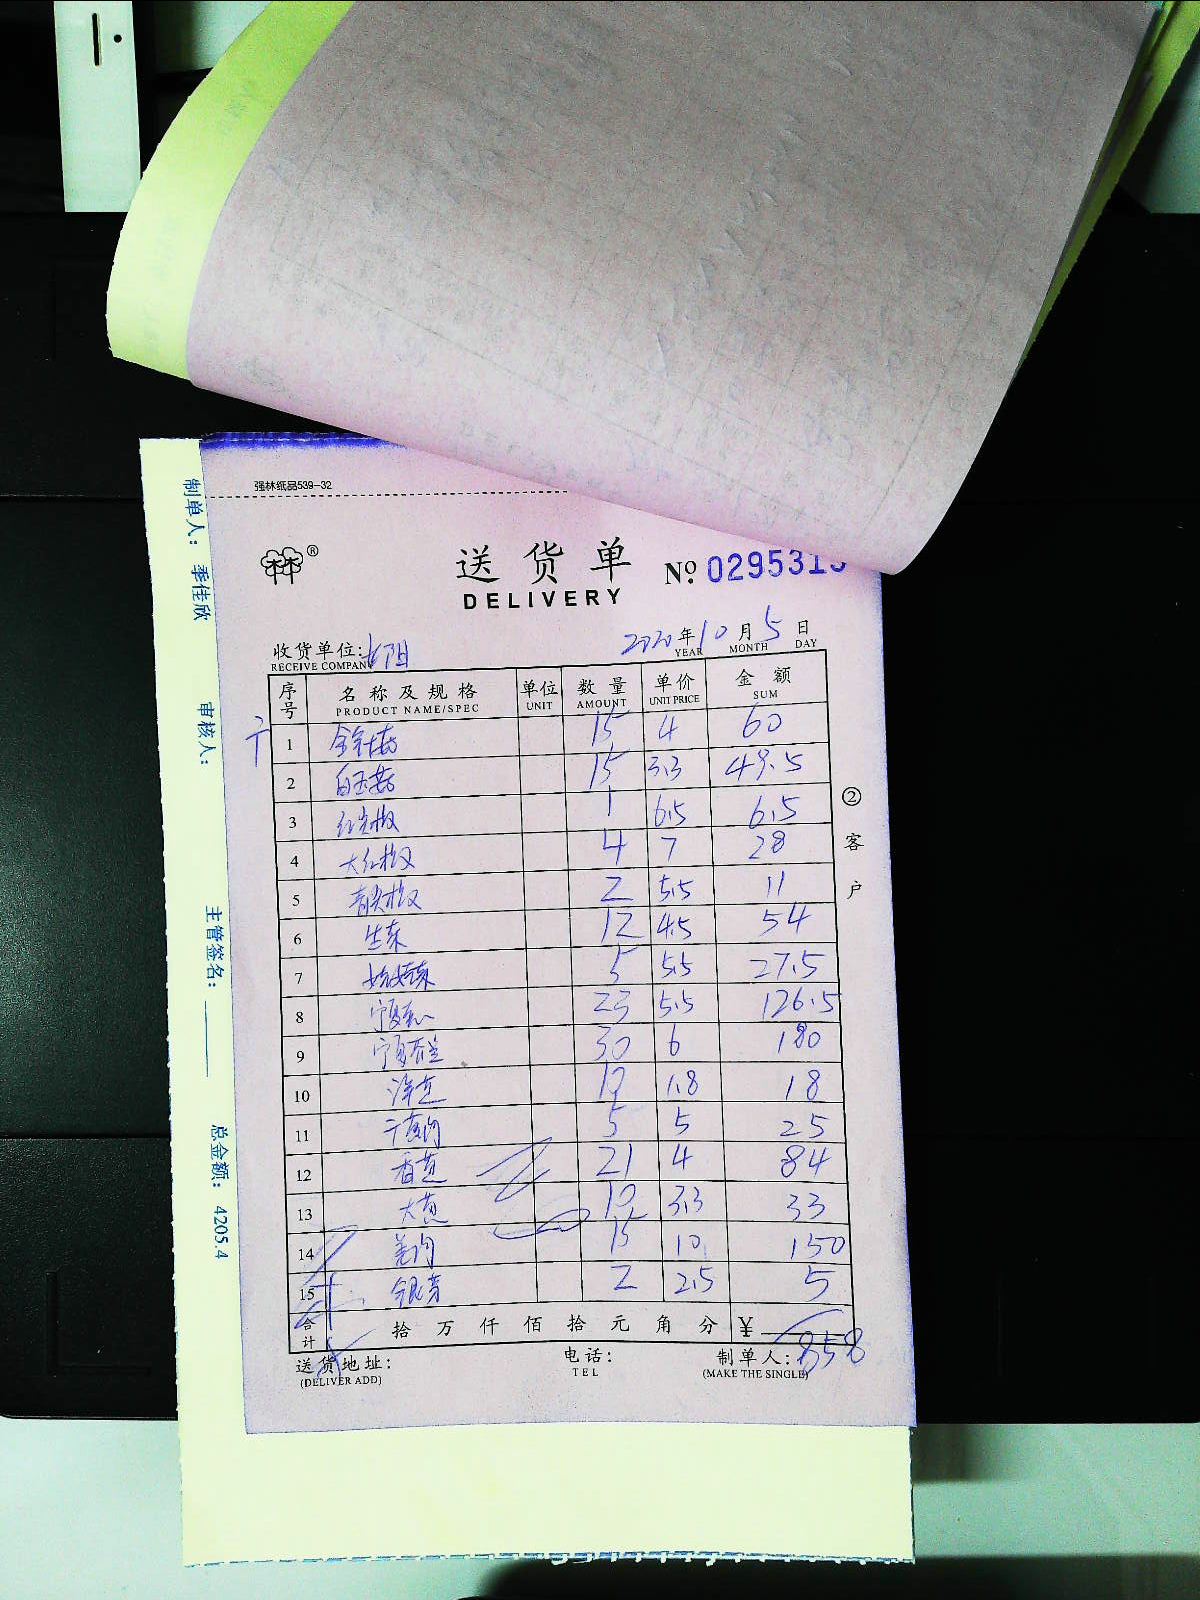 强林纸品539-32
送货单 № 029531
DELIVERY
收货单位: 2020年10月5日
RECEIVE COMPANY YEAR MONTH DAY
序号 名称及规格 单位 数量 单价 金额
PRODUCT NAME/SPEC UNIT AMOUNT UNIT PRICE SUM
1 金针菇 15 4 60
2 白玉菇 15 3.3 49.5
3 红尖椒 1 6.5 6.5
4 大红椒 4 7 28
5 青尖椒 2 5.5 11
6 生菜 12 4.5 54
7 娃娃菜 5 5.5 27.5
8 宁夏 23 5.5 126.5
9 宁夏 30 6 180
10 洋芋 10 1.8 18
11 5 5 25
12 香葱 21 4 84
13 大葱 10 3.3 33
14 姜肉 15 10 150
15 银芽 2 2.5 5
合计 拾万仟佰拾元角分 ¥ 858
送货地址: 电话: 制单人:
(DELIVER ADD) TEL (MAKE THE SINGLE)
②客户
制单人: 季佳欣 审核人: 主管签名: 总金额: 4205.4